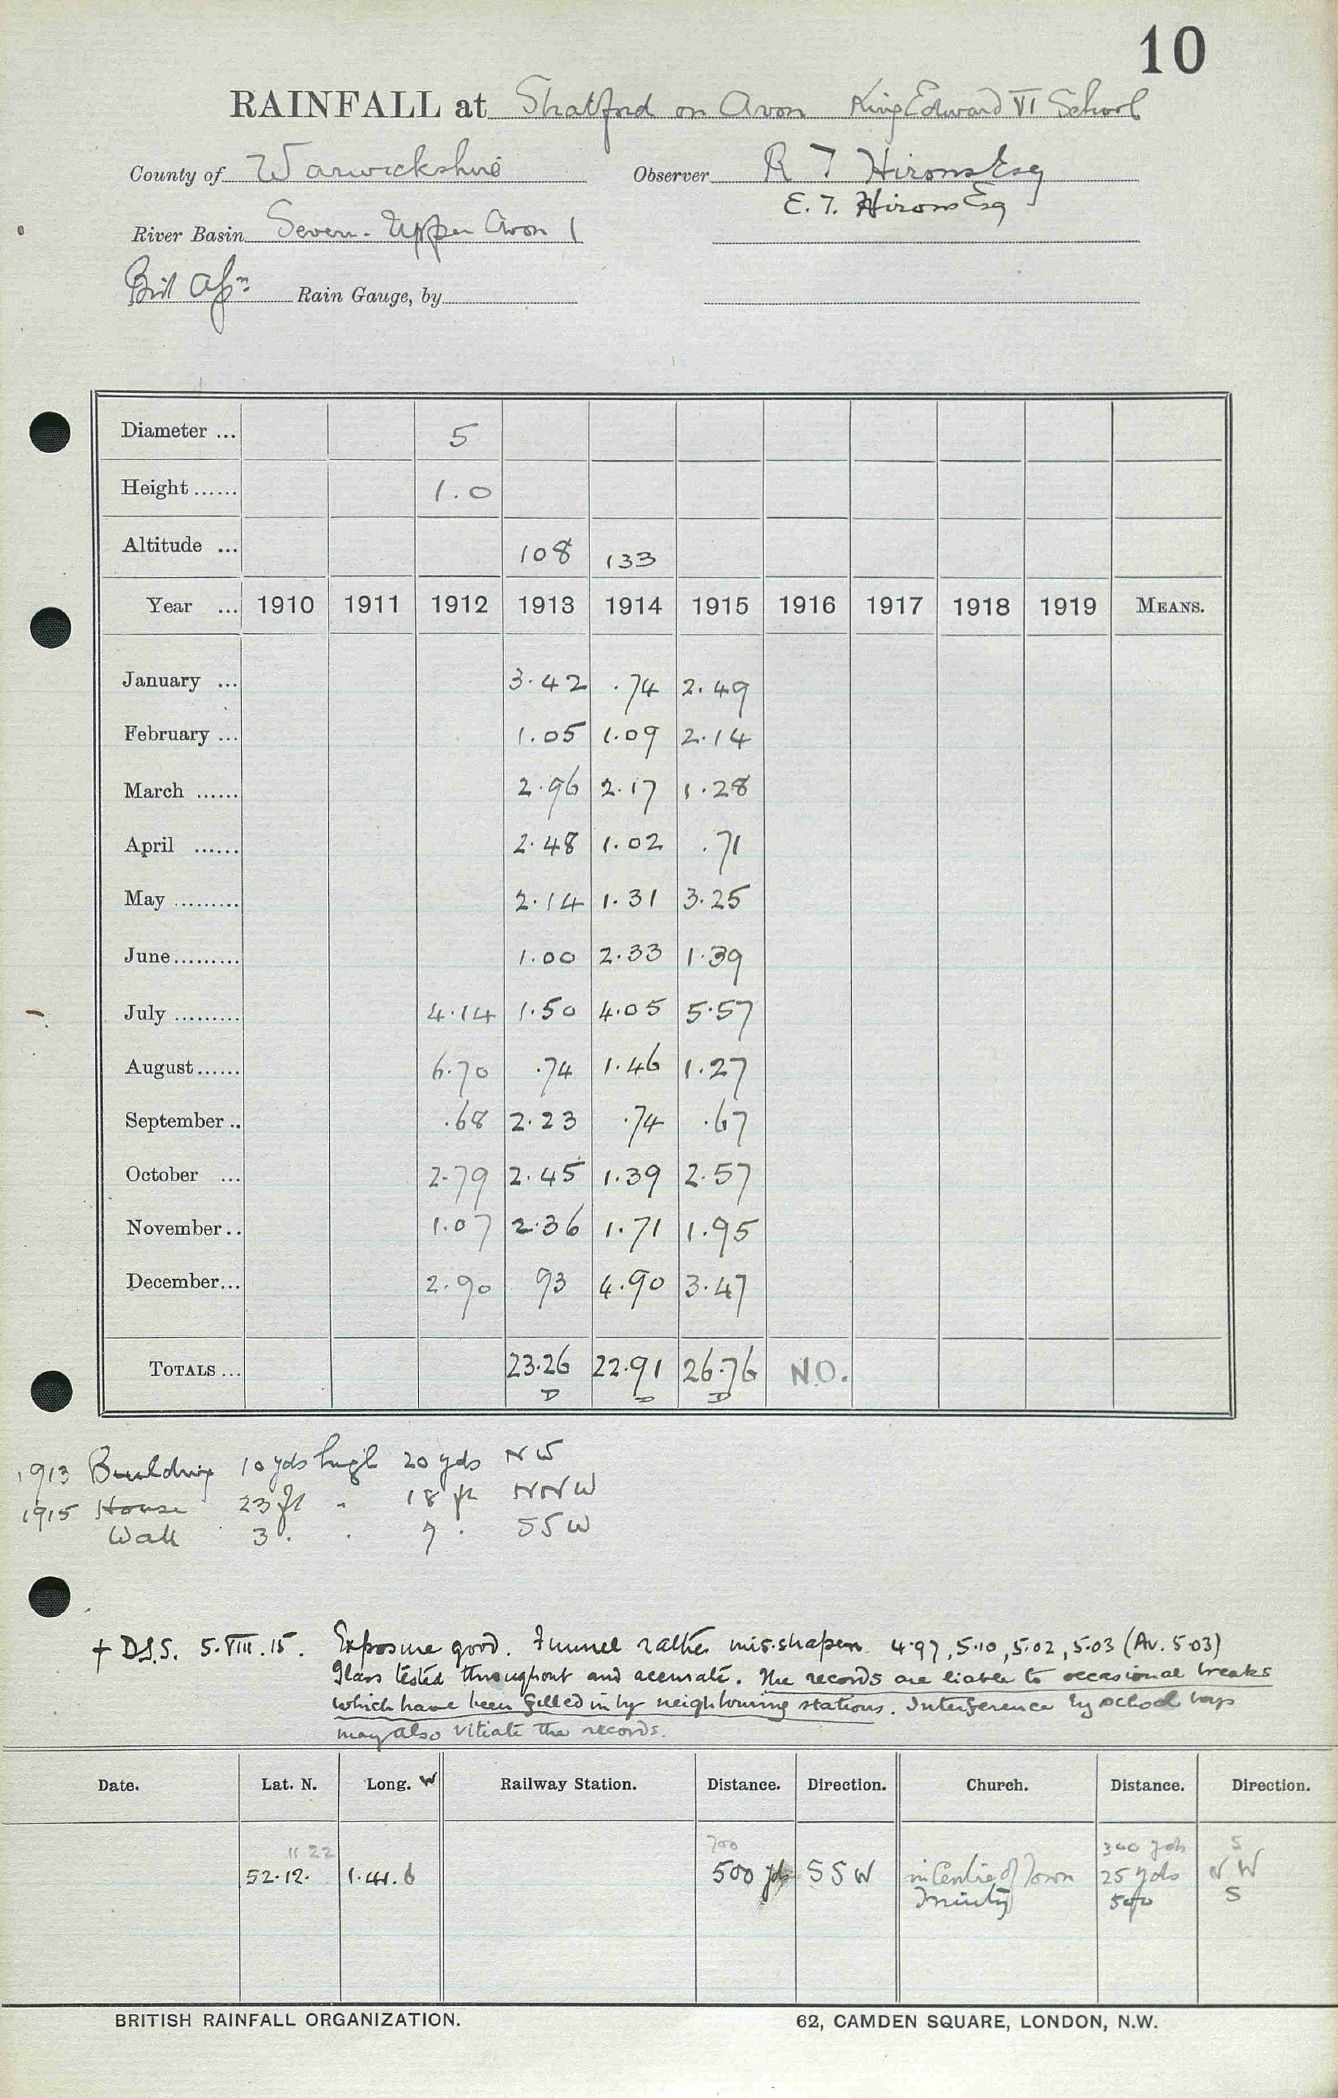 10
RAINFALL at Stratford on Avon King Edward VI School
County of Warwickshire Observer R T Hirons Esq
E. T. Hirons Esq
River Basin Severn - Upper Avon 1
Rain Gauge, by
Diameter ... 5
Height ...... 1.0
Altitude ... 108 133
Year ... 1910 1911 1912 1913 1914 1915 1916 1917 1918 1919 MEANS.
January ... 3.42 .74 2.49
February ... 1.05 1.09 2.14
March ...... 2.96 2.17 1.28
April ...... 2.48 1.02 .71
May ......... 2.14 1.31 3.25
June......... 1.00 2.33 1.39
July ......... 4.14 1.50 4.05 5.57
August...... 6.70 .74 1.46 1.27
September .. .68 2.23 .74 .67
October ... 2.79 2.45 1.39 2.57
November.. 1.07 2.36 1.71 1.95
December... 2.90 93 4.90 3.47
TOTALS ... 23.26 22.91 26.76 N.O.
D D D
1913 Building 10 yds high 20 yds NW
1915 House 23 ft " 18 ft NNW
Wall 3 . . 7 . SSW
+ D.S.S. 5.VIII.15. Exposure good. Funnel rather misshapen 4.97, 5.10, 5.02, 5.03 (Av. 5.03)
Glass tested throughout and accurate. The records are liable to occasional breaks
which have been filled in by neighbouring stations. Interference by school boys
may also vitiate the records.
Date. Lat. N. Long. W Railway Station. Distance. Direction. Church. Distance. Direction.
11 22 700 300 yds S
52.12. 1.41.6 500 yds SSW in Centre of Town 25 yds NW
Trinity 500 S
BRITISH RAINFALL ORGANIZATION. 62, CAMDEN SQUARE, LONDON, N.W.